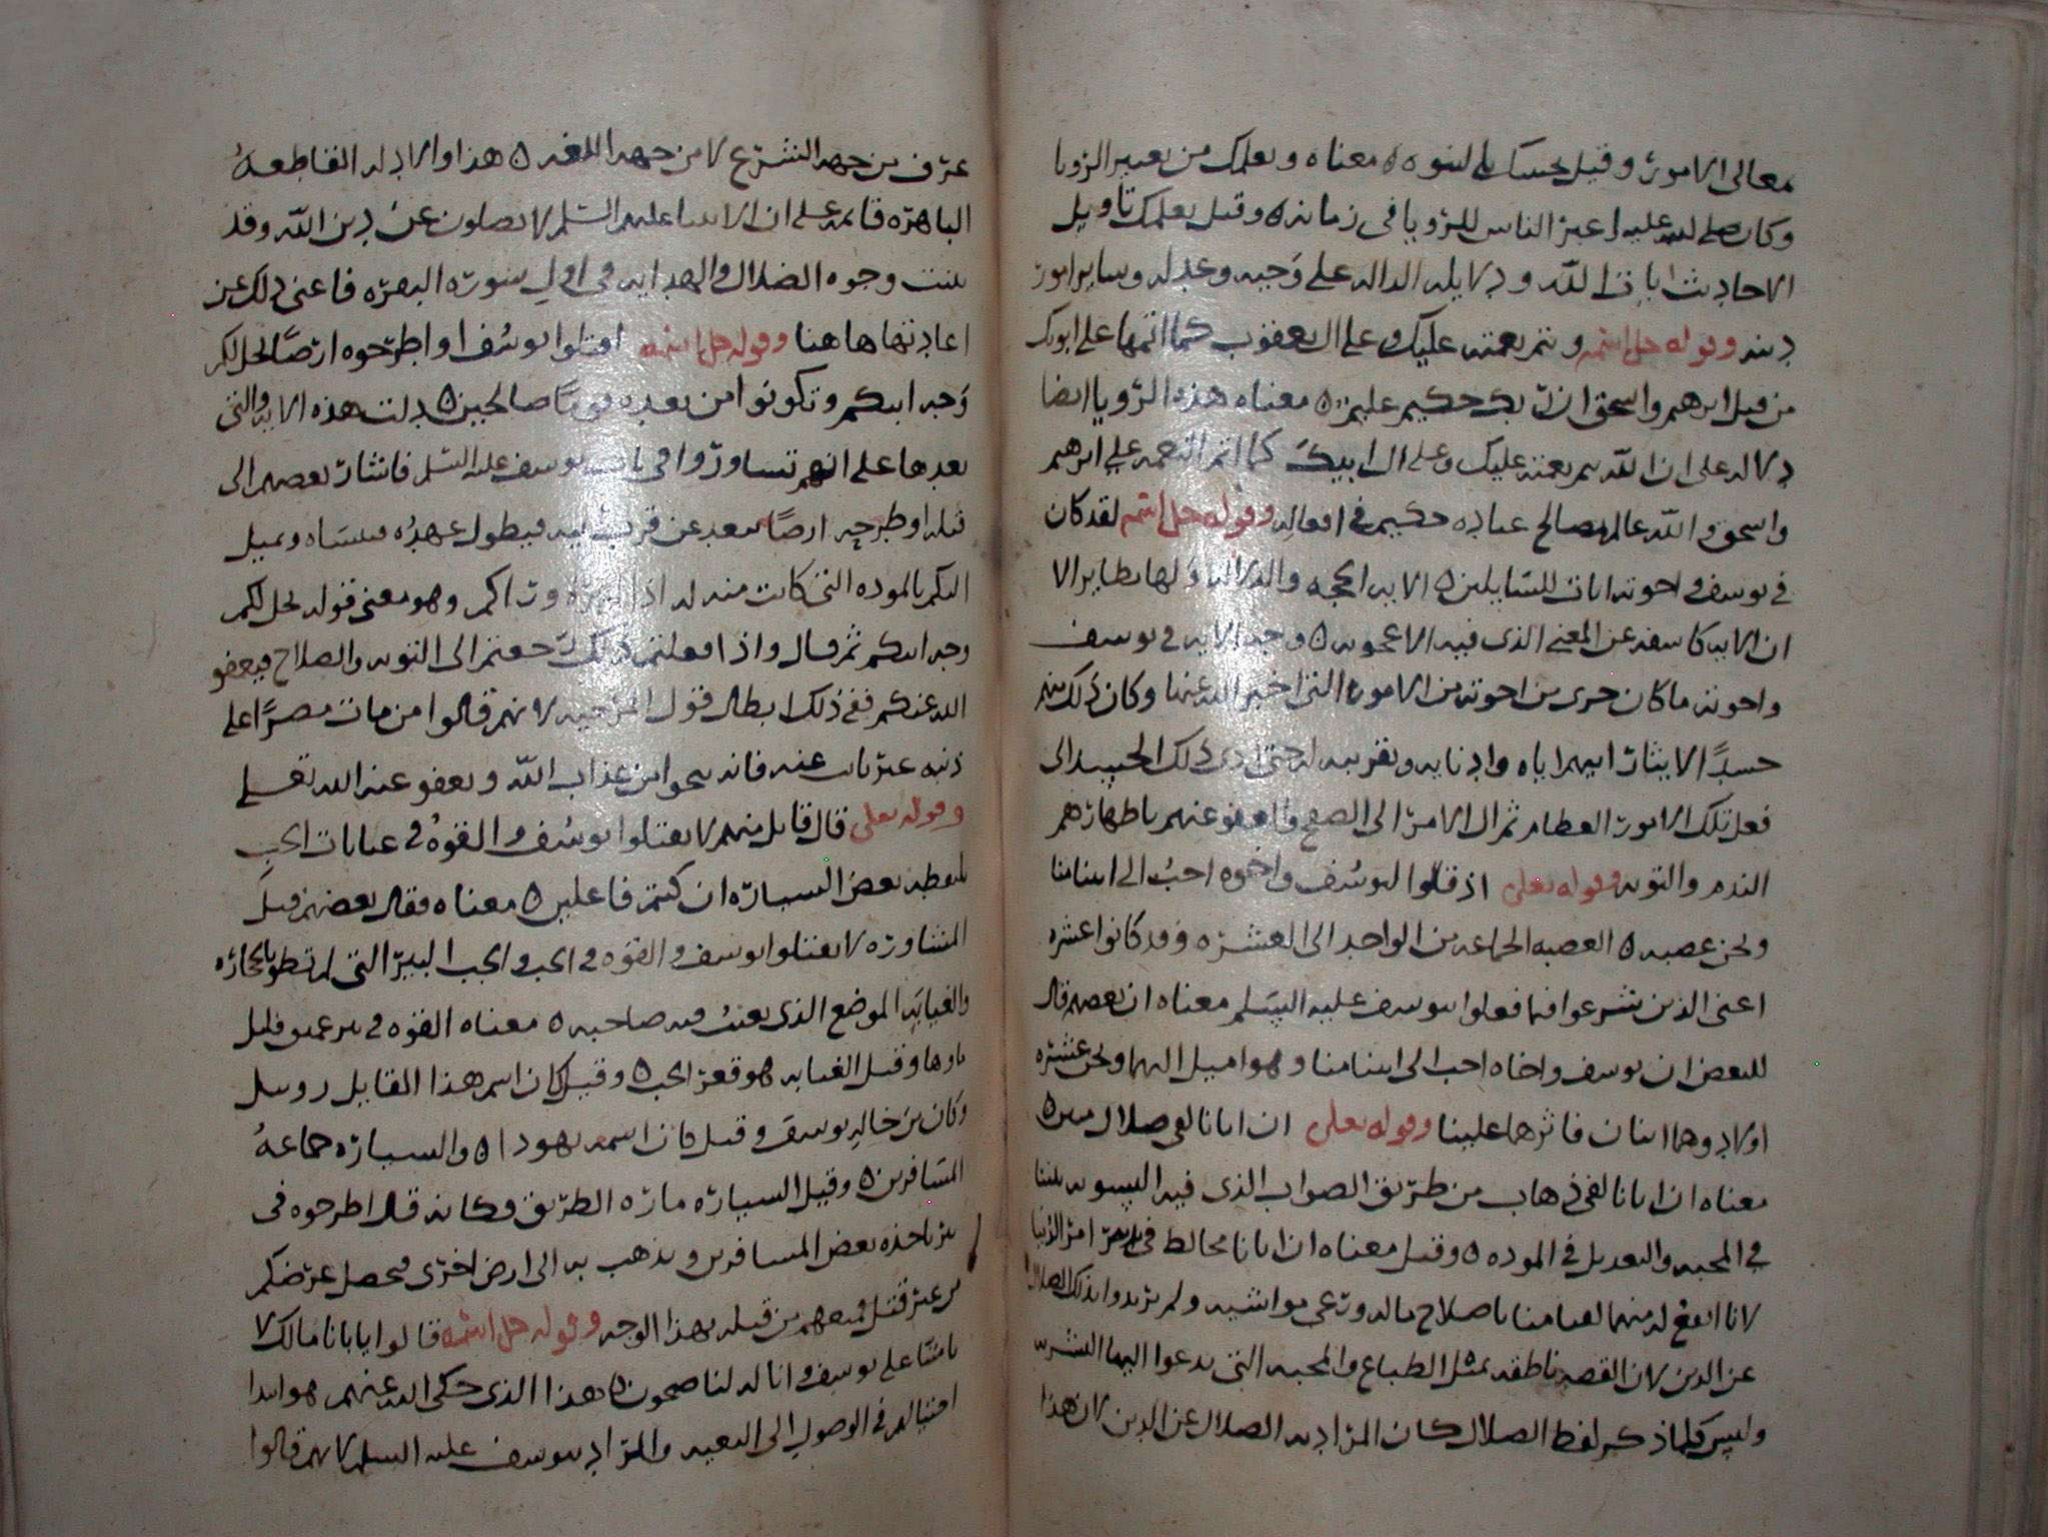 معالى الامور وقيل بحسبك بالنبوه ه معناه ويعلمك من تعبير الرويا
وكان صلى الله عليه اعبر الناس للرويا فى زمانه ه وقيل يعلمك تاويل
الاحاديث ايات الله ودلايله الداله على توحيده وعدله وساير امور
دينه وقوله جل اسمه ويتم نعمته عليك وعلى ال يعقوب كما اتمها على ابويك
من قبل ابرهيم واسحق ان ربك حكيم عليم ه معناه هذه الرويا ايضا
داله على ان الله يتم نعمته عليك وعلى ال ابيك كما اتم النعمه على ابرهيم
واسحق والله عالم بمصالح عباده حكيم فى افعاله وقوله جل اسمه لقد كان
فى يوسف واخوته ايات للسايلين ه الايه الحجه والدلاله ولها نظاير الا
ان الايه كاشفه عن المعنى الذى فيه الاعجوبه ه وجه الايه فى يوسف
واخوته ما كان جرى من اخوته من الامور التى اخبر الله عنها وكان ذلك منهم
حسدًا لايثار ابيهم اياه وادنايه وتقريبه له حتى ادى ذلك الحسد الى
فعل تلك الامور العظام ثم ال الامر الى الصفح والعفو عنهم باظهارهم
الندم والتوبه وقوله تعلى اذ قالوا ليوسف واخوه احب الى ابينا منا
ونحن عصبه ه العصبه الجماعه من الواحد الى العشره وقد كانوا عشره
اعنى الذين شرعوا فيما فعلوا بيوسف عليه السلم معناه ان بعضهم قال
للبعض ان يوسف واخاه احب الى ابينا منا وهو اميل اليهما ونحن عشره
اولاد وهما اثنان فاثرهما علينا وقوله تعلى ان ابانا لفى ضلال مبين ه
معناه ان ابانا لفى ذهاب من طريق الصواب الذى فيه التسويه بيننا
فى المحبه والتعديل فى الموده ه وقيل معناه ان ابانا مخالط فى تدبير امر الدنيا
لانا انفع له منهما لقيامنا باصلاح ماله ورعى مواشيه ولم يريدوا بذلك الضلال
عن الدين لان القصه ناطقه بمثل الطباع والمحبه التى يدعوا اليها البشريه
وليس كلما ذكر لفظ الضلال كان المراد به الضلال عن الدين لان هذا
عرف من جهه الشرع لا من جهه اللغه ه هذا والادله القاطعه
الباهره قايمه على ان الانبيا عليهم السلم لا يضلون عن دين الله وقد
بينت وجوه الضلال والهدايه فى اول سوره البقره فاغنى ذلك عن
اعادتها هاهنا وقوله جل اسمه اقتلوا يوسف او اطرحوه ارضًا يخل لكم
وجه ابيكم وتكونوا من بعده قومًا صالحين ه دلت هذه الايه والتى
بعدها على انهم تشاوروا فى باب يوسف عليه السلم فاشار بعضهم الى
قتله او طرحه ارضًا تبعد عن قرب ابيه فيطول عهده فينساه ويميل
اليكم بالموده التى كانت منه له اذا لم يره وراكم وهو معنى قوله يخل لكم
وجه ابيكم ثم قال واذا فعلتم ذلك رجعتم الى التوبه والصلاح فيعفو
الله عنكم ففى ذلك ابطال قول المرجيه لانهم قالوا من مات مصرًا على
ذنبه غير تايب عنه فانه ينجو من عذاب الله ويعفو عنه الله تعلى
وقوله تعلى قال قايل منهم لا تقتلوا يوسف والقوه فى غيابات الجب
يلتقطه بعض السياره ان كنتم فاعلين ه معناه فقال بعضهم قبل
المشاوره لا تقتلوا يوسف والقوه فى الجب والجب البير التى لم تطو بالحجاره
والغيابه الموضع الذى يغيب فيه صاحبه ه معناه القوه فى بير عميق قليل
ماوها وقيل الغيابه هو قعر الجب ه وقيل كان اسم هذا القايل روبيل
وكان بن خاله يوسف وقيل كان اسمه يهودا ه والسياره جماعه
المسافرين ه وقيل السياره ماره الطريق فكانه قال اطرحوه فى
بير ياخذه بعض المسافرين ويذهب به الى ارض اخرى فيحصل غرضكم
من غير قتل فمنعهم من قتله بهذا الوجه وقوله جل اسمه قالوا يا بانا مالك لا
تامنا على يوسف وانا له لناصحون ه هذا الذى حكى الله عنهم هو ابتدا
احتيالهم فى الوصول الى البغيه والمراد بيوسف عليه السلم لانهم قالوا